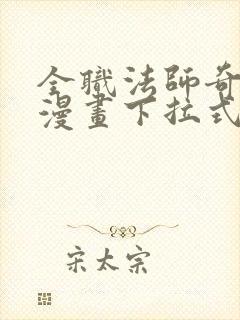 全職法師奇
漫畫下拉式
宋太宗